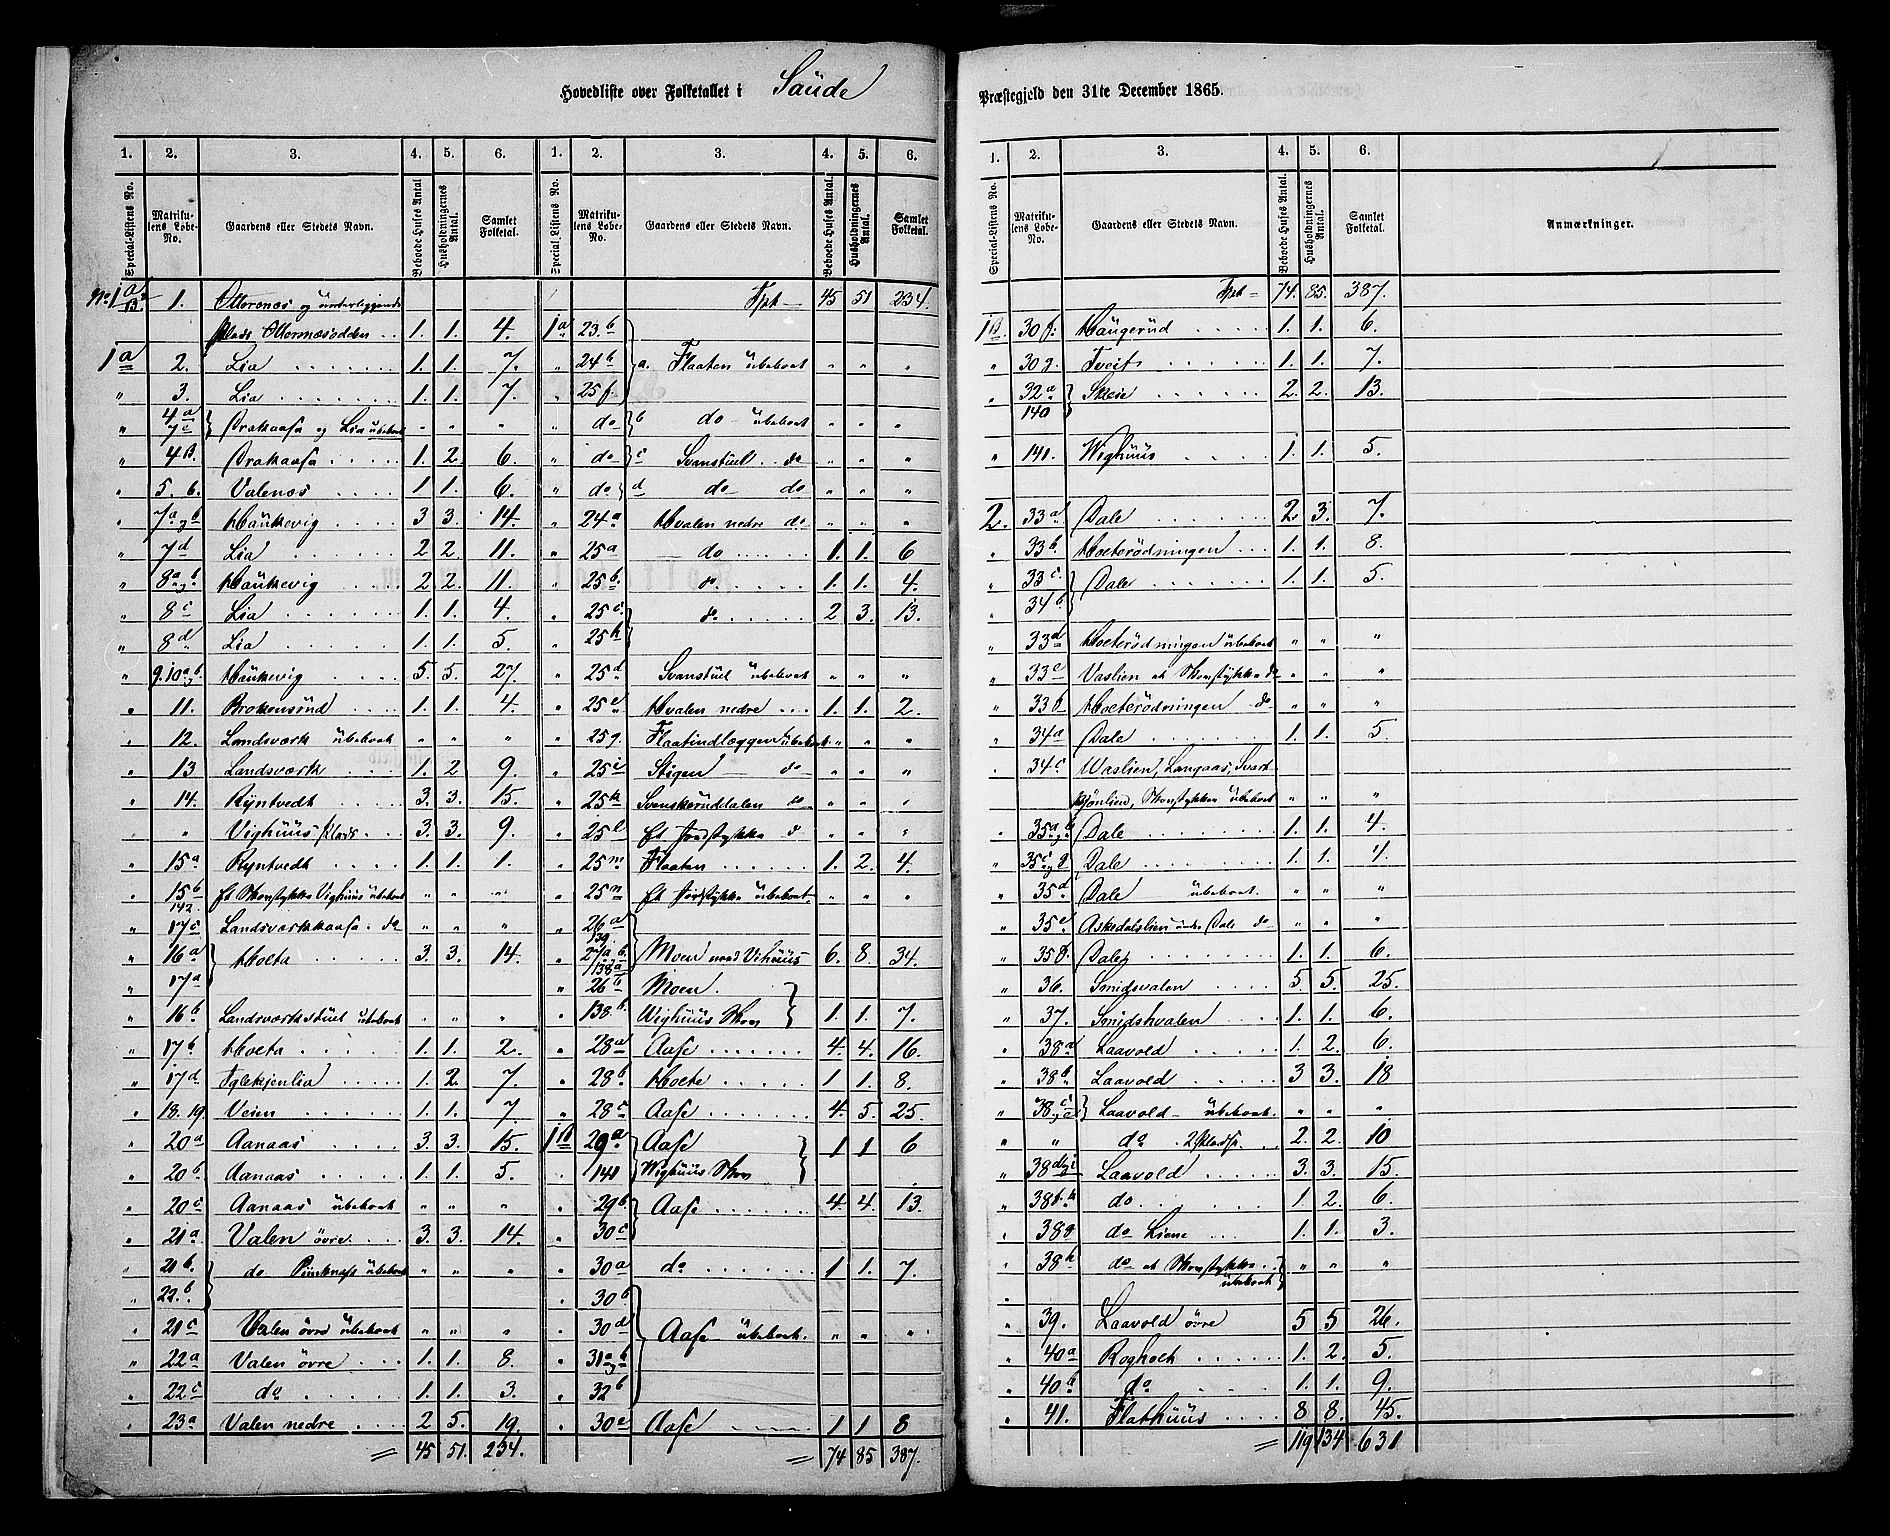 Hovedliste over Folketallet i Saude Præstegjeld den 31te December 1865.
1. 2. 3. 4. 5. 6. 1. 2. 3. 4. 5. 6.
Special-Listens No. Matrikulens Løbe-No. Gaardens eller Stedets Navn. Beboede Huses Antal Husholdningernes Antal. Samlet Folketal. Special-Listens No. Matrikulens Løbe-No. Gaardens eller Stedets Navn. Beboede Huses Antal. Husholdningernes Antal. Samlet Folketal.
1. Otternæs og underliggende
Plads Otternæsodden 1. 1. 4.
1a 2. Lia 1. 1. 7.
" 3. Lia 1. 1. 7.
" 4a 7c Brakaasa og Lia ubeboet " " "
" 4B. Brakaasa 1. 2. 6.
" 5. 6. Valenæs 1. 1. 6.
" 7a og b Haukevig 3. 3. 14.
" 7d Lia 2 2. 11.
" 8a og b Haukevig 2 2. 11.
" 8c Lia 1. 1. 4.
" 8d Lia 1. 1. 5.
" 9. 10a og b Haukevig 5. 5. 27.
" 11. Brokensund 1. 1. 4.
" 12. Landsværk ubeboet " " "
" 13 Landsværk 1. 2 9.
" 14. Ryntvedt 3. 3. 15.
" " Vighuus Plads 3. 3. 9.
" 15a Ryntvedt 1. 1. 1.
" 15b 142. Et Skovstykke Vighuus ubeboet " " "
" 17c Landsværkkaasa do " " "
" 16a Hoeta 3. 3. 14.
" 17a
" 16b Landsværkstuel ubeboet " " "
" 17b Hoeta 1. 1. 2.
" 17d Iglekjenlia 1. 2. 7.
" 18. 19. Veim 1. 1. 7.
" 20a Aanaas 3. 3. 15.
" 20b Aanaas 1. 1. 5.
" 20c Aanaas ubeboet " " "
" 21a Valen övre 3. 3. 14.
" 21b. do ubeboet " " "
" 22.b
" 21c Valen övre ubeboet " " "
" 22a Valen övre 1. 1. 8.
" 22c do 1. 1. 3.
" 23a Valen nedre 2 5. 19.
= 45 51. 234.
Tpt 45 51 234.
1a 23.b
" 24b a. Flaaten ubeboet " " "
" 25f.
" do b do ubeboet " " "
" do c Svanstuel do " " "
" do d do do " " "
" 24a Hvalen nedre do " " "
" 25a do 1. 1. 6
" 25b. do 1. 1. 4.
" 25c. do 2 3. 13.
" 25h
" 25d Svanstuel ubeboet " " "
" 25e Hvalen nedre 1. 1. 2.
" 25g. Flaatindlæggen ubeboet " " "
" 25i Stigen do " " "
" 25k Svenskeruddalen do " " "
" 25l Et Jordstykke do " " "
" 25m Flaaten 1. 2. 4.
" 25n Et Jordstykke ubeboet " " "
" 26a 139.
" 27a b. 138a Moen med Vihuus 6. 8. 34.
" 26b Moen.
" 138b. Wighuus Skov 1. 1. 7.
" 28a Aase 4. 4. 16.
" 28b Hoete 1 1. 8.
" 28c Aase 4. 5. 25.
1B 29a Aase 1 1. 6
141 Wighuus Skov
" 29b Aase 4. 4. 13.
" 30c
" 30a do 1 1. 7.
" 30b
" 30d Aase ubeboet " " "
" 31a og b
" 32b
" 30e Aase 1 1. 8
= 74 85 387.
1. 2. 3. 4. 5. 6.
Special-Listens No. Matrikulens Løbe-No. Gaardens eller Stedets Navn. Beboede Huses Antal. Husholdningernes Antal. Samlet Folketal. Anmærkninger.
Tpt 74. 85. 387.
1B. 30f. Haugerud 1. 1. 6.
" 30g. Tveit 1. 1. 7.
" 32a 140 Skeie 2. 2. 13.
" 141. Wighuus 1. 1. 5.
2. 33a Dale 2 3. 7.
" 33b. Hoeterödningen 1. 1. 8.
" 33c. Dale 1. 1. 5.
" 34b
" 33d Hoeterödningen ubeboet " " "
" 33e Vaslien et Skovstykke do " " "
" 33f Hoeterödningen do " " "
" 34a Dale 1. 1. 5.
" 34c Waslien, Langaas, Svart
kjönlien, Skovstykke ubeboet " " "
" 35a og b Dale 1. 1. 4.
" 35c og g Dale 1. 1. 4.
" 35d Dale ubeboet " " "
" 35e Askedalslien under Dale do " " "
" 35f. Dale 1. 1. 6.
" 36. Smidsvalen 5 5. 25.
" 37. Smidshvalen 1. 1. 6.
" 38a Laavold 1. 2. 6.
" 38b Laavold 3 3. 18
" 38c Laavold ubeboet. " " "
" " do 2 Pladse 2. 2. 10
" 38d Laavold 3. 3. 15.
" 38f.k do 1. 2. 6.
" 38g do Liene 1. 1. 3.
" 38h do et Skovstykke ubeboet " " "
" 39. Laavold övre 5 5 26.
" 40a Rogholt 1. 2. 5.
" 40b do 1. 1. 9.
" 41. Flathuus 8 8. 45.
= 119 134 631